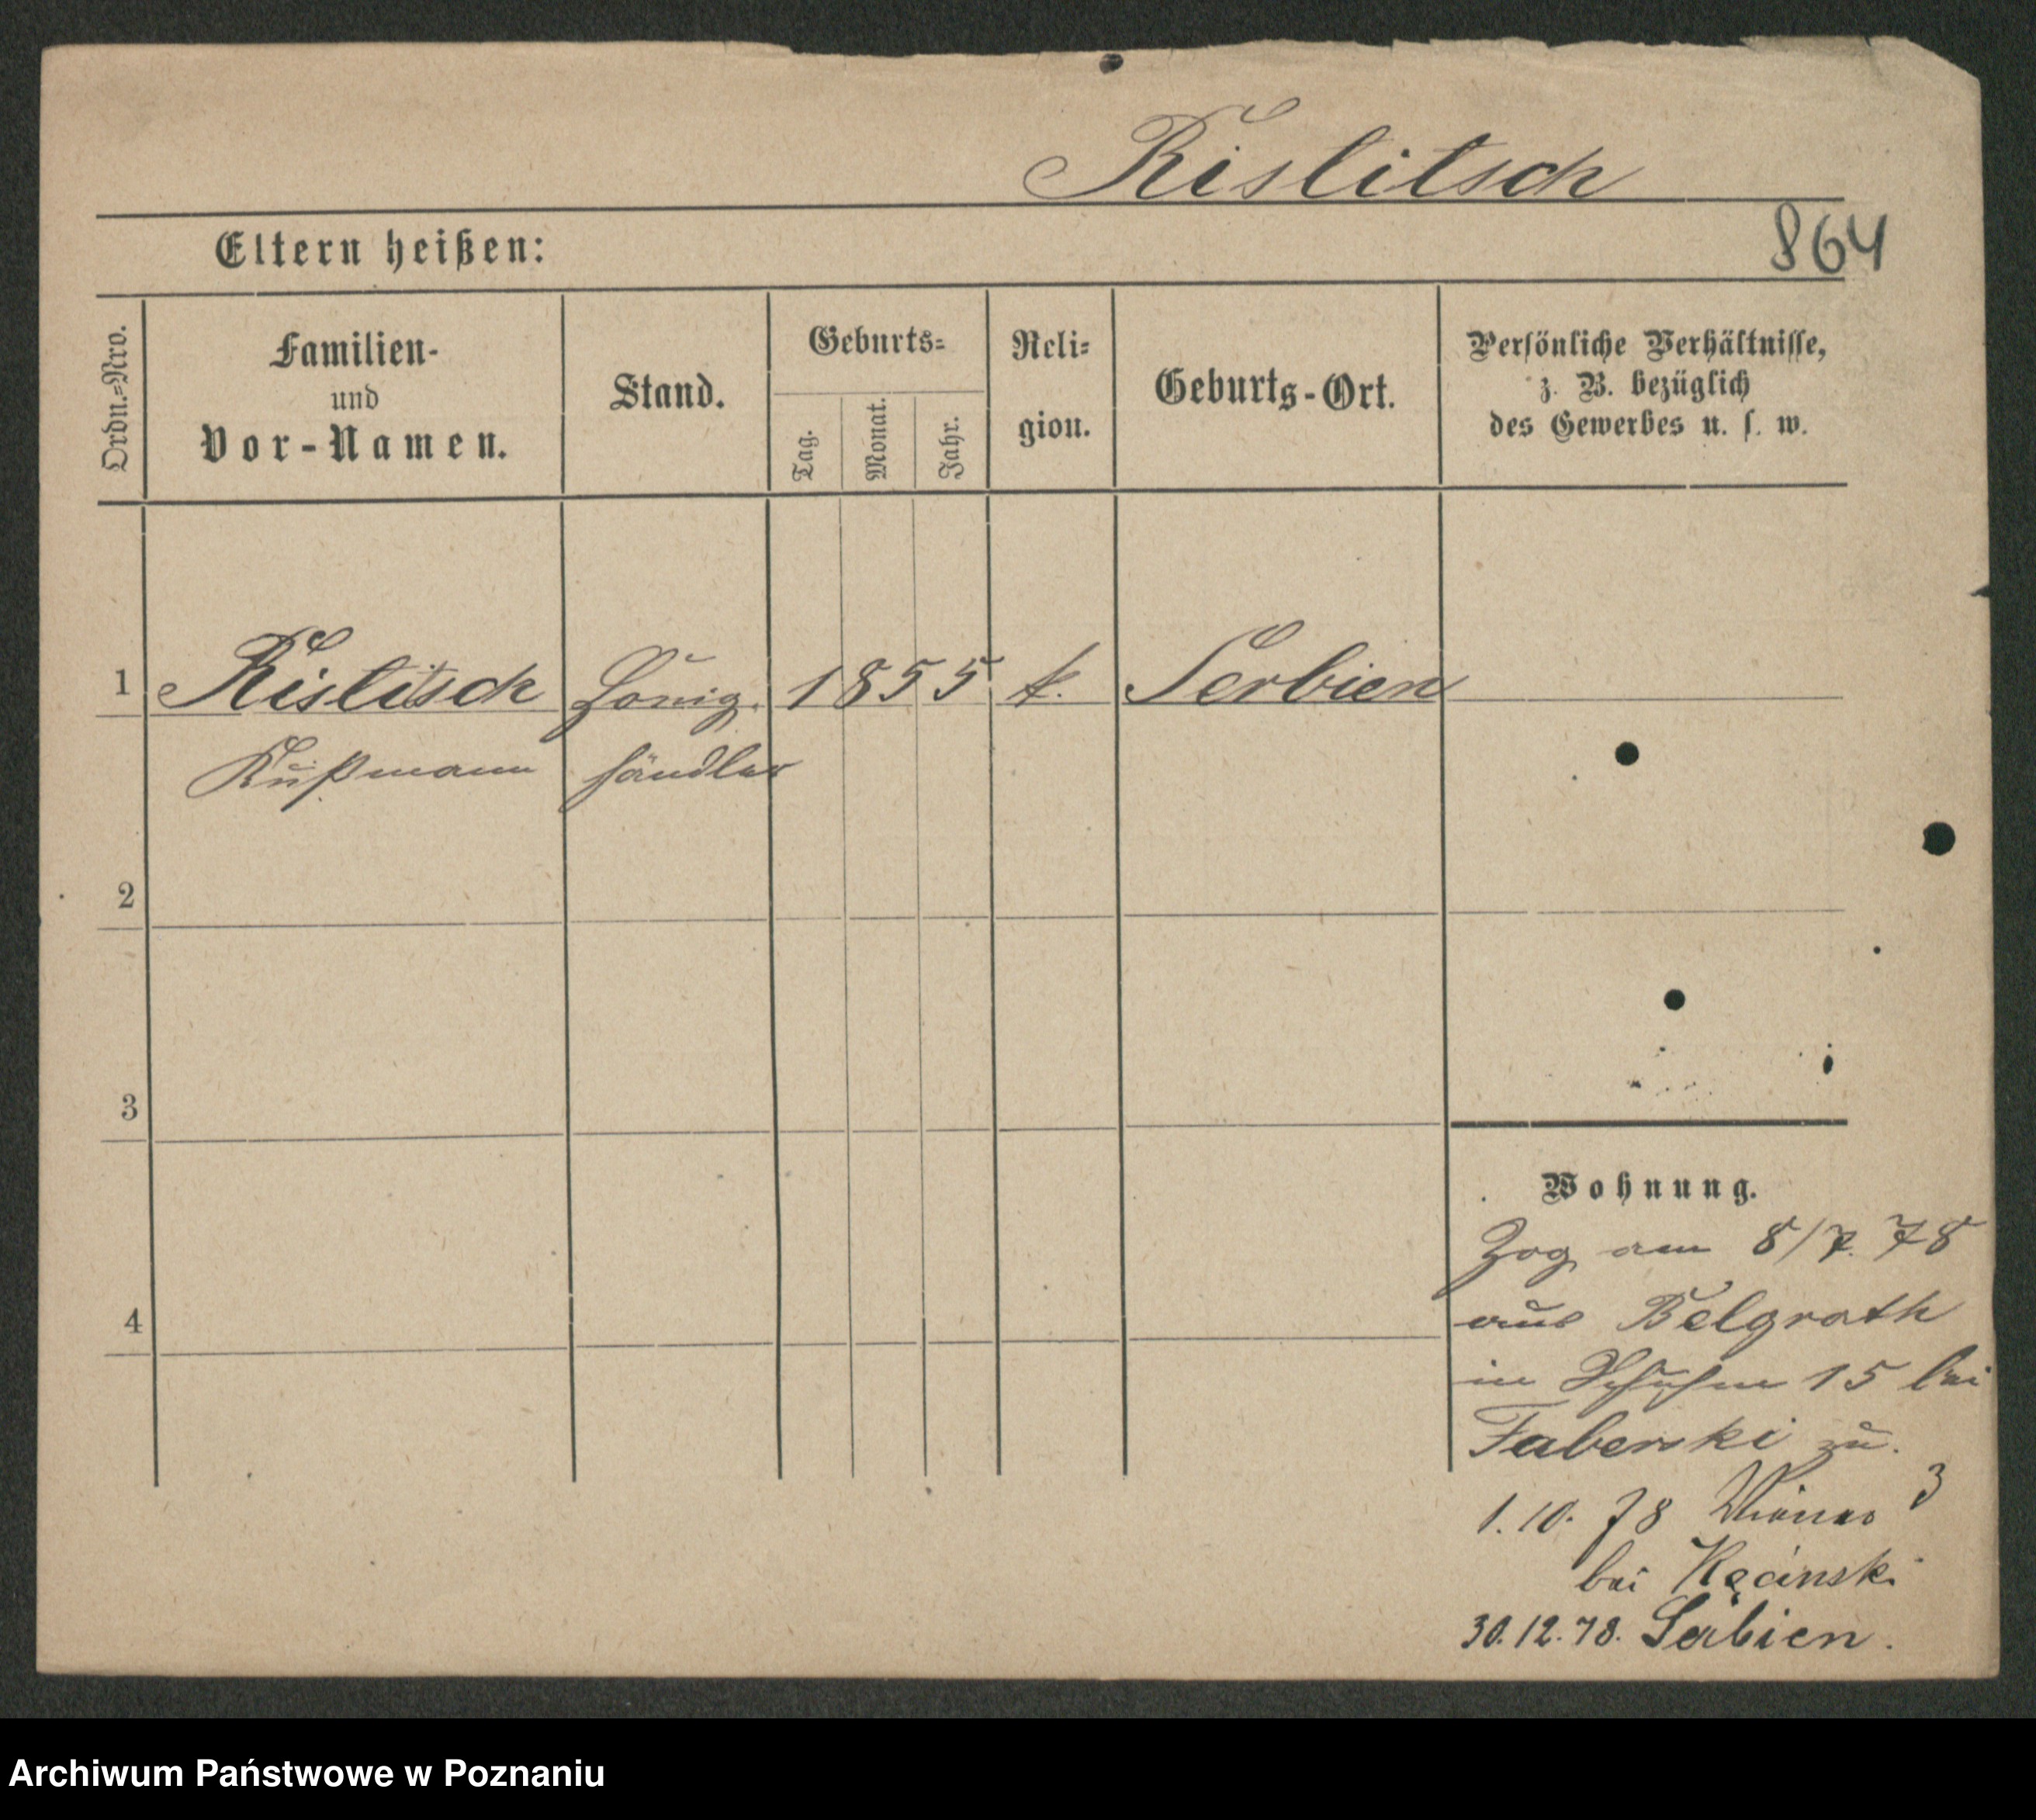 Kislitsch
864
Eltern heißen:
Ordn.=Nro.
Familien-
und
Vor-Namen.
Stand.
Geburts=
Tag.
Monat.
Jahr.
Reli=
gion.
Geburts-Ort.
Persönliche Verhältnisse,
z. B. bezüglich
des Gewerbes u. s. w.
1 Kislitsch Honig. 1855 k. Serbien
händler
2
3
4
Wohnung.
Zog am 8/7. 78
aus Belgrath
in 15 bei
Faberski zu.
1.10.78 3
bei Kęcinski
30.12.78. Serbien.
Archiwum Państwowe w Poznaniu